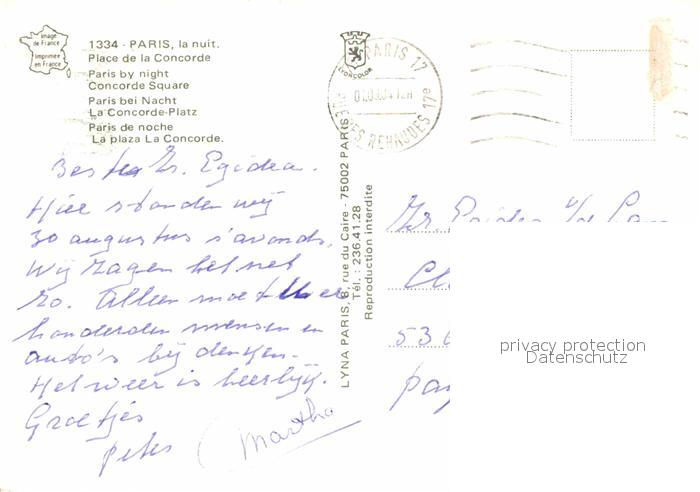 Image
de France
Imprimée
en France
1334 - PARIS, la nuit.
Place de la Concorde
Paris by night
Concorde Square
Paris bei Nacht
La Concorde-Platz
Paris de noche
La plaza La Concorde.
LYONCOLOR
PARIS 17
17e
Beste Zr. Egidea.
Hier stonden wij
30 augustus s'avonds.
Wij zagen het net
zo. Alleen moet U er
honderden mensen en
auto's bij denken.
Het weer is heerlijk.
Groetjes
Peter
Martha
LYNA PARIS, 8, rue du Caire - 75002 PARIS
Tél. : 236.41.28
Reproduction interdite
Zr.
536
privacy protection
Datenschutz